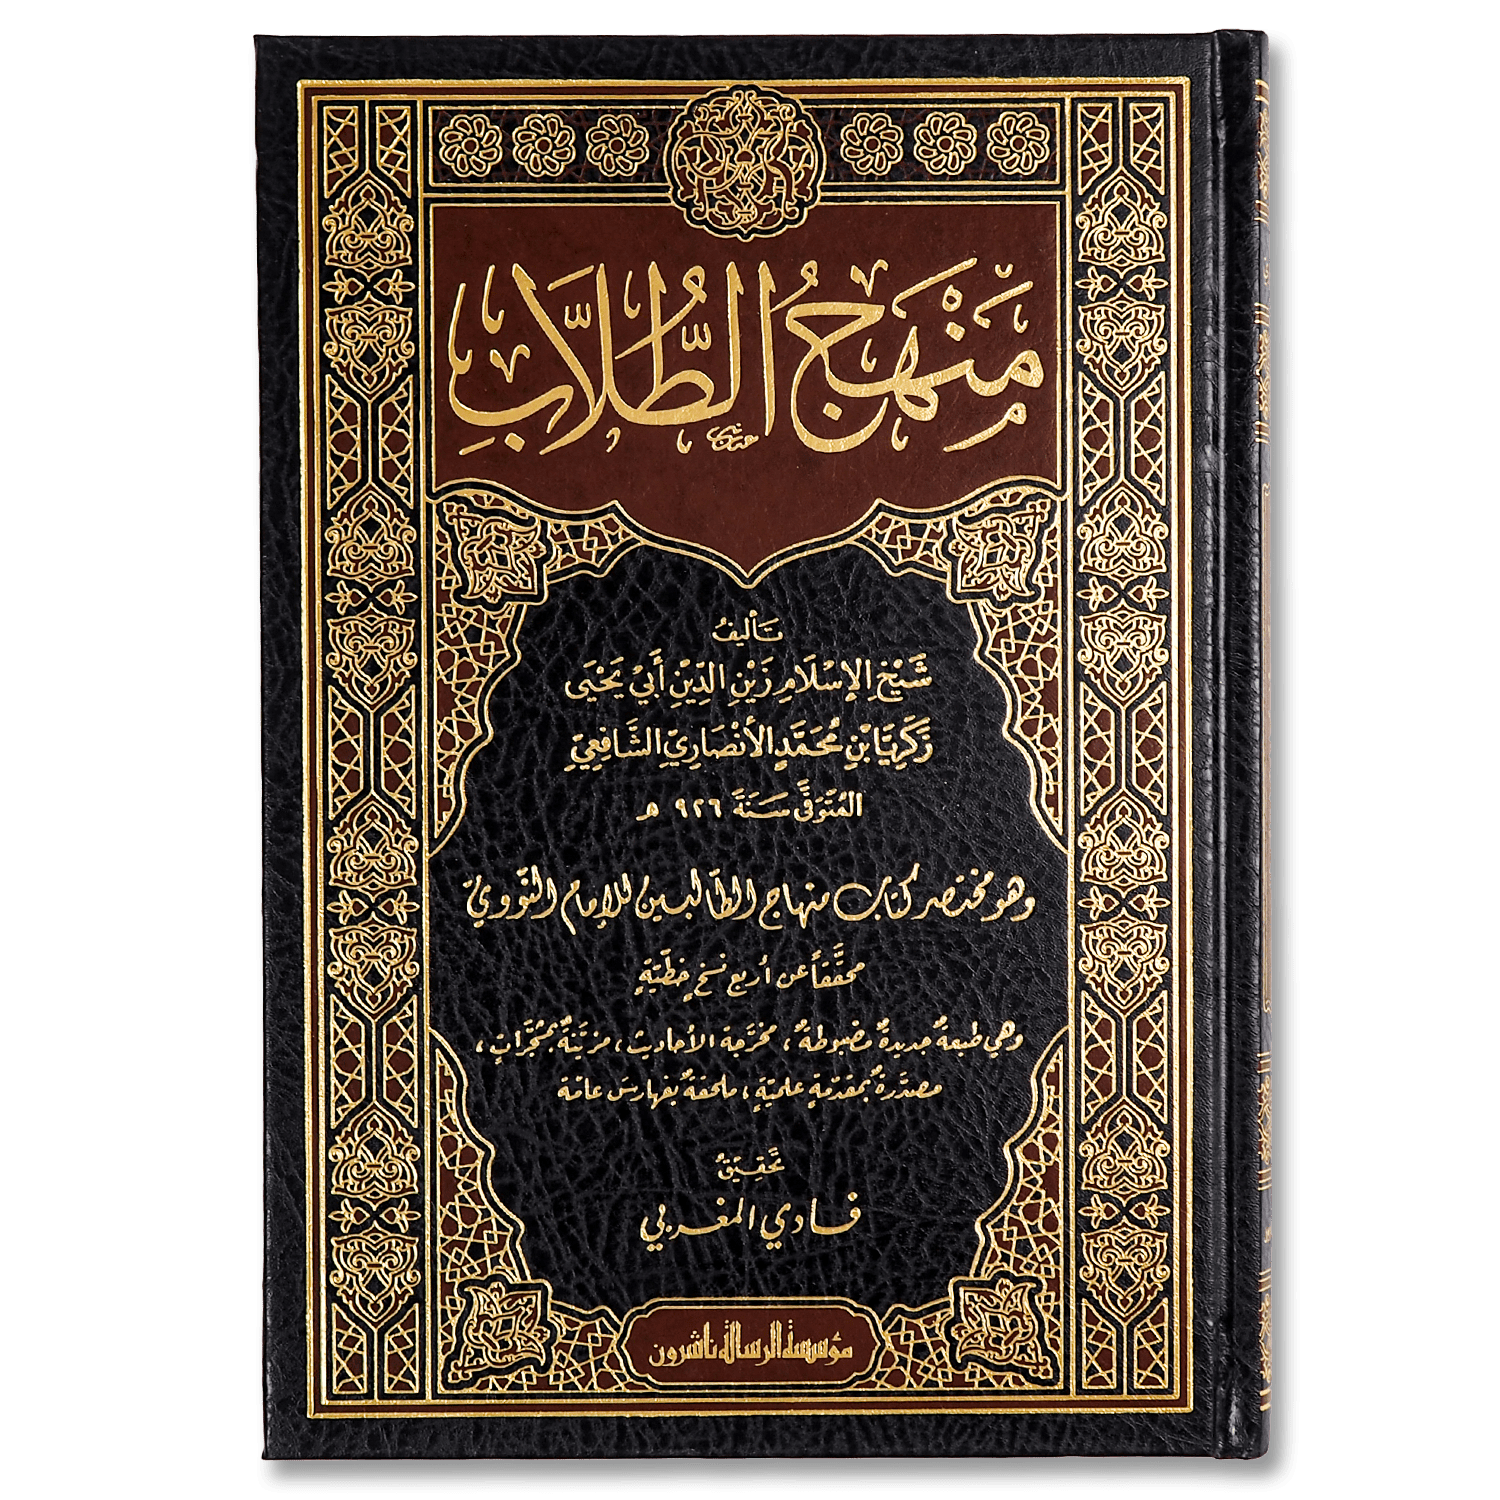 مَنْهَجُ الطُّلَّابِ
تَأليفُ
شَيْخِ الإِسْلَامِ زَيْنِ الدِّيْنِ أَبِيْ يَحْيَى
زَكَرِيَّا بْنِ مُحَمَّدٍ الأَنْصَارِيِّ الشَّافِعِيِّ
المُتَوَفَّى سَنَةَ ٩٢٦ هـ
وهو مختصر كتاب منهاج الطالبين للإمام النووي
محققاً عن أربع نسخٍ خطيّةٍ
وهي طبعةٌ جديدةٌ مضبوطةٌ، مخرّجة الأحاديث، مزيّنةٌ بمشجّراتٍ،
مصدّرةٌ بمقدّمةٍ علميّةٍ، ملحقةٌ بفهارسَ عامّة
تحقيقُ
فادي المغربي
مؤسسة الرسالة ناشرون